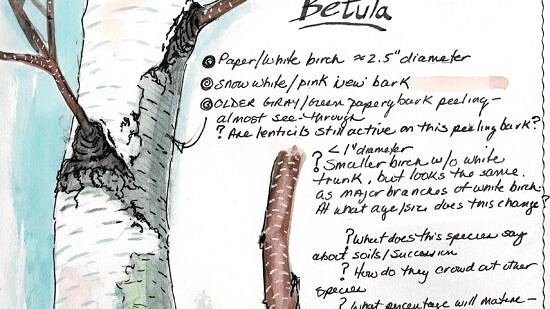 Betula
Paper/white birch ≈ 2.5" diameter
Snow white/pink new bark
OLDER GRAY/Green papery bark peeling –
almost see-through
? Are lenticils still active on this peeling bark?
< 1" diameter
? Smaller birch w/o white
trunk, but looks the same
as major branches of white birch.
At what age/size does this change?
? What does this species say
about soils/succession
? How do they crowd out other
species
? What percentage will mature –